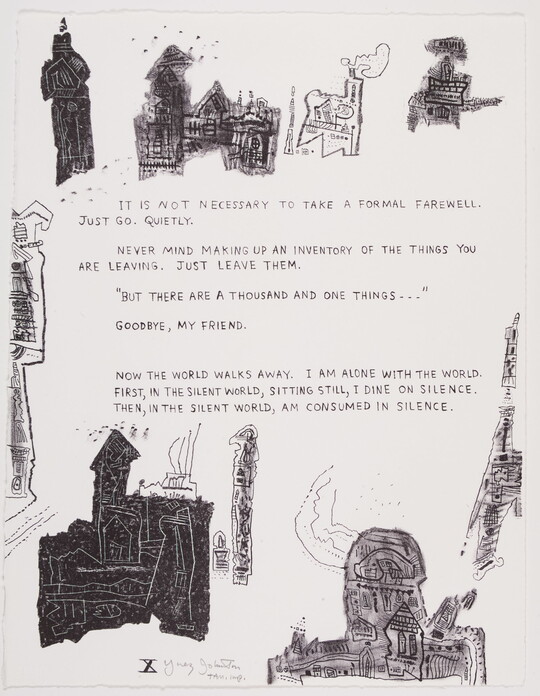 IT IS NOT NECESSARY TO TAKE A FORMAL FAREWELL.
JUST GO. QUIETLY.
NEVER MIND MAKING UP AN INVENTORY OF THE THINGS YOU
ARE LEAVING. JUST LEAVE THEM.
"BUT THERE ARE A THOUSAND AND ONE THINGS---"
GOODBYE, MY FRIEND.
NOW THE WORLD WALKS AWAY. I AM ALONE WITH THE WORLD.
FIRST, IN THE SILENT WORLD, SITTING STILL, I DINE ON SILENCE.
THEN, IN THE SILENT WORLD, AM CONSUMED IN SILENCE.
X Ynez Johnston
TAM. IMP.